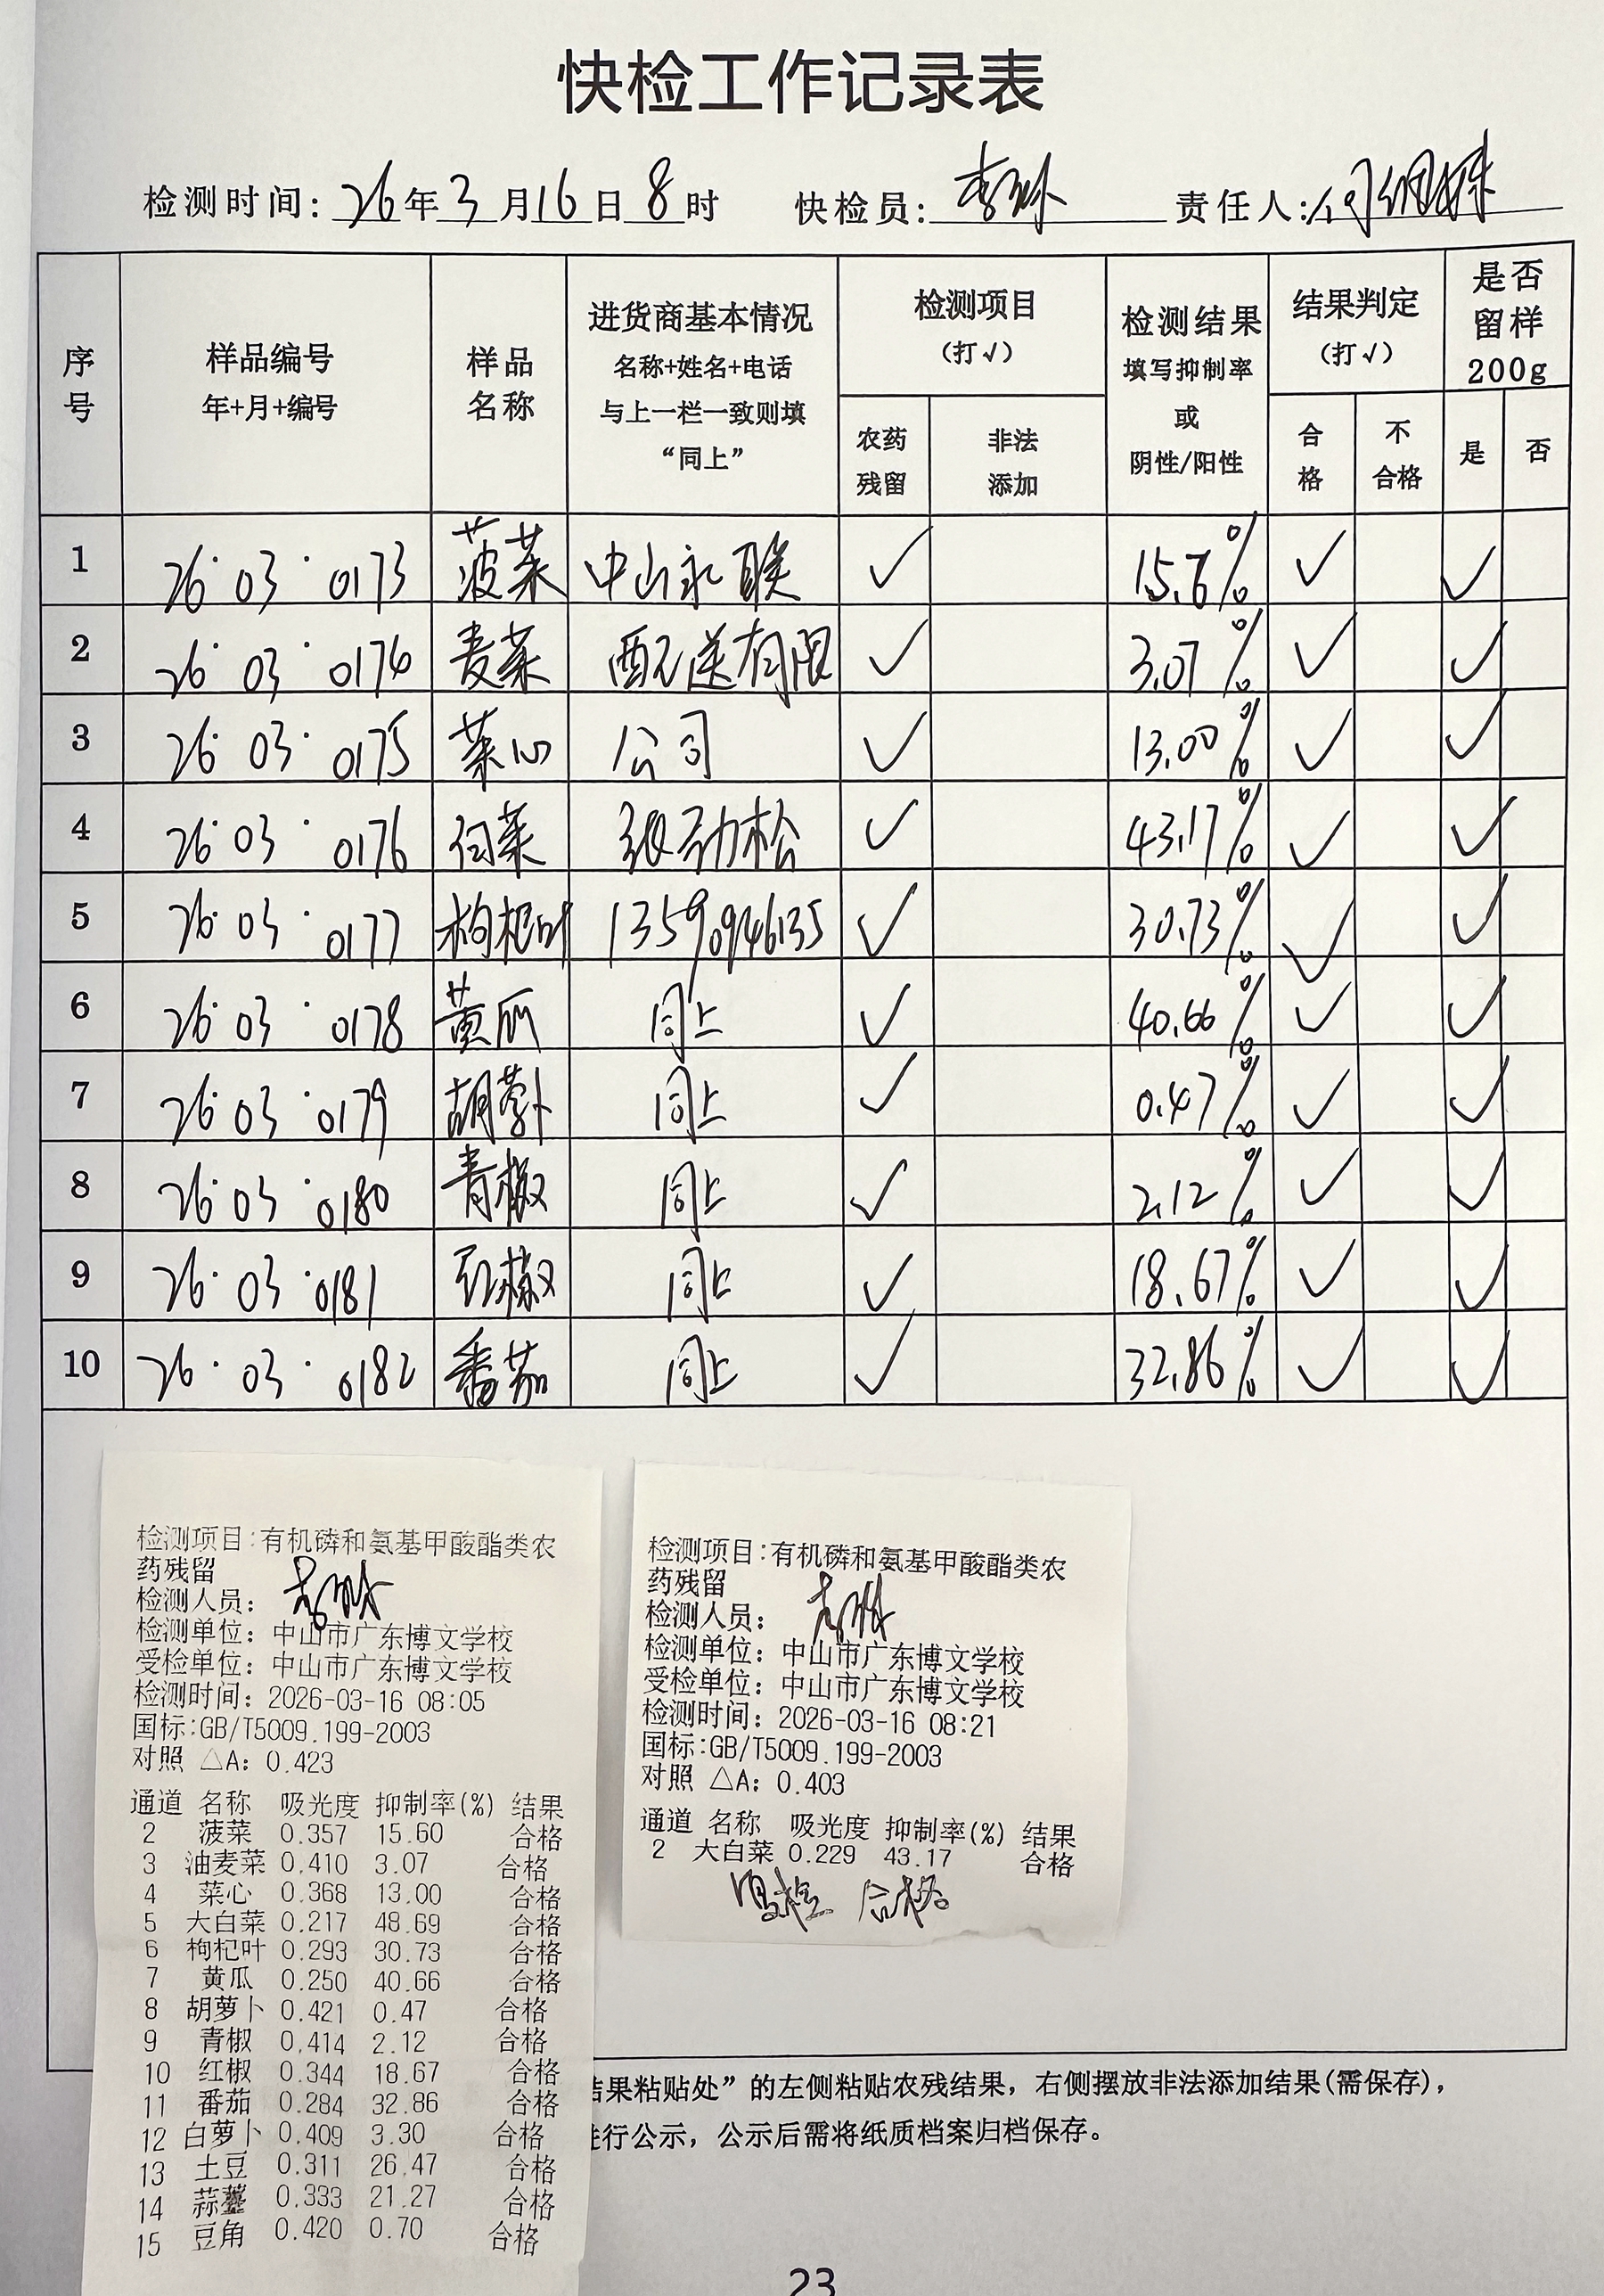 快检工作记录表
检测时间: 26年3月16日8时 快检员: 责任人:
序号 样品编号 年+月+编号 样品名称 进货商基本情况 名称+姓名+电话 与上一栏一致则填“同上” 检测项目(打√) 农药残留 非法添加 检测结果 填写抑制率或阴性/阳性 结果判定(打√) 合格 不合格 是否留样200g 是 否
1 26·03·0173 菠菜 中山永联 ✓ 15.6% ✓ ✓
2 26·03·0174 麦菜 配送有限 ✓ 3.07% ✓ ✓
3 26·03·0175 菜心 公司 ✓ 13.00% ✓ ✓
4 26·03·0176 白菜 张劲松 ✓ 43.17% ✓ ✓
5 26·03·0177 枸杞叶 13590946135 ✓ 30.73% ✓ ✓
6 26·03·0178 黄瓜 同上 ✓ 40.66% ✓ ✓
7 26·03·0179 胡萝卜 同上 ✓ 0.47% ✓ ✓
8 26·03·0180 青椒 同上 ✓ 2.12% ✓ ✓
9 26·03·0181 红椒 同上 ✓ 18.67% ✓ ✓
10 26·03·0182 番茄 同上 ✓ 32.86% ✓ ✓
检测项目:有机磷和氨基甲酸酯类农
药残留
检测人员:
检测单位: 中山市广东博文学校
受检单位: 中山市广东博文学校
检测时间: 2026-03-16 08:05
国标:GB/T5009.199-2003
对照 △A: 0.423
通道 名称 吸光度 抑制率(%) 结果
2 菠菜 0.357 15.60 合格
3 油麦菜 0.410 3.07 合格
4 菜心 0.368 13.00 合格
5 大白菜 0.217 48.69 合格
6 枸杞叶 0.293 30.73 合格
7 黄瓜 0.250 40.66 合格
8 胡萝卜 0.421 0.47 合格
9 青椒 0.414 2.12 合格
10 红椒 0.344 18.67 合格
11 番茄 0.284 32.86 合格
12 白萝卜 0.409 3.30 合格
13 土豆 0.311 26.47 合格
14 蒜薹 0.333 21.27 合格
15 豆角 0.420 0.70 合格
检测项目:有机磷和氨基甲酸酯类农
药残留
检测人员:
检测单位: 中山市广东博文学校
受检单位: 中山市广东博文学校
检测时间: 2026-03-16 08:21
国标:GB/T5009.199-2003
对照 △A: 0.403
通道 名称 吸光度 抑制率(%) 结果
2 大白菜 0.229 43.17 合格
复检 合格
结果粘贴处”的左侧粘贴农残结果，右侧摆放非法添加结果(需保存)，
进行公示，公示后需将纸质档案归档保存。
23